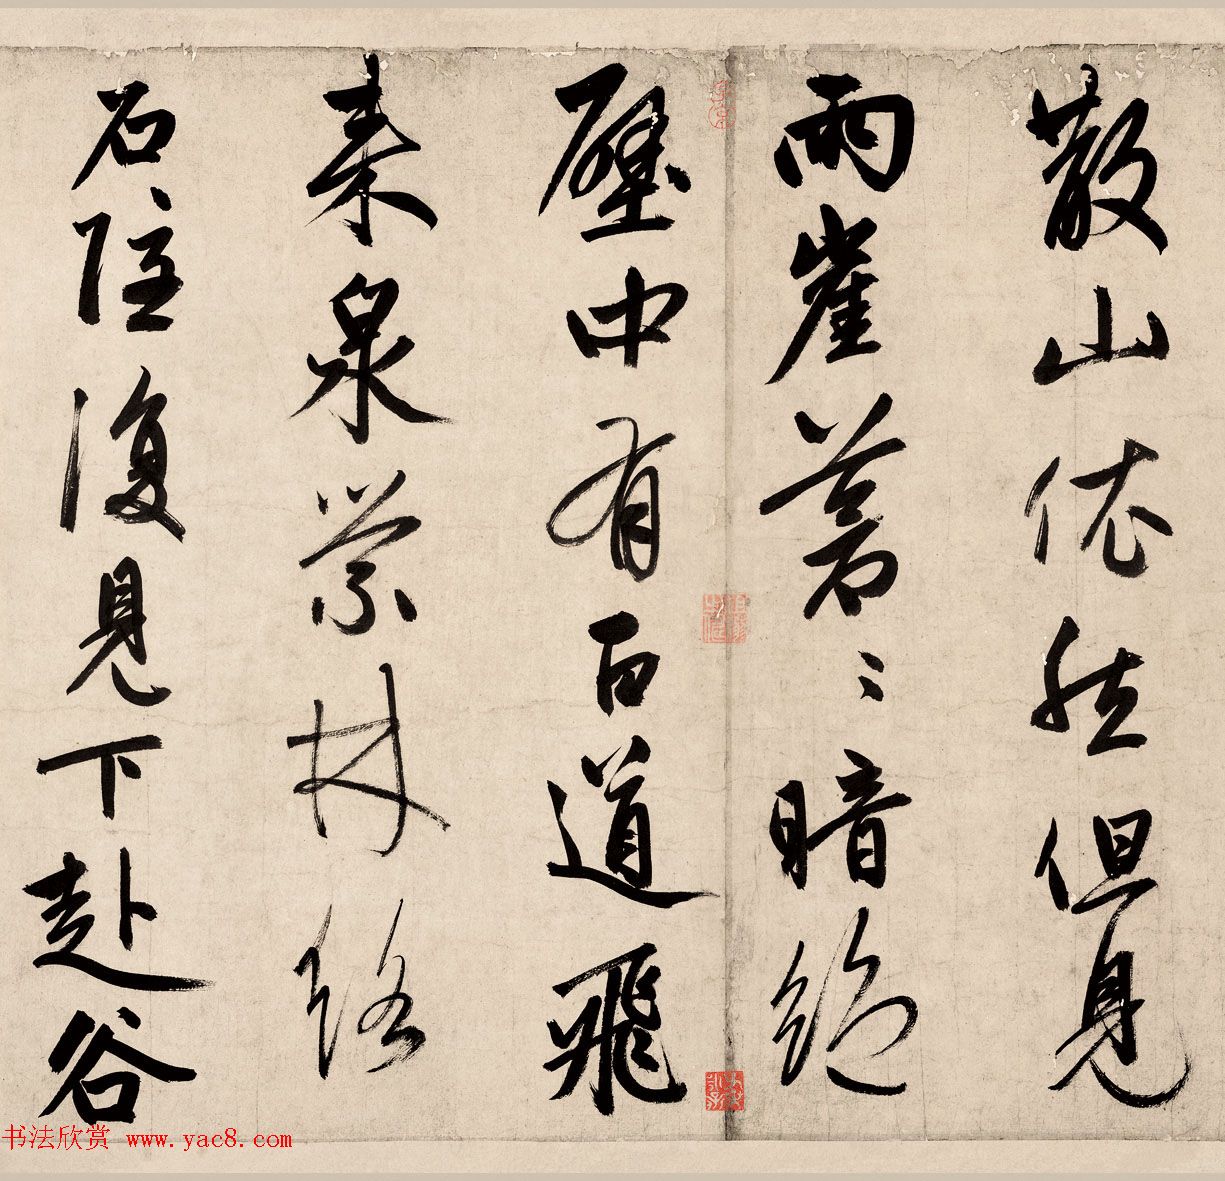 散山依然但見
兩崖蒼〻暗絕
壁中有百道飛
來泉縈林絡
石隱復見下赴谷
书法欣赏 www.yac8.com